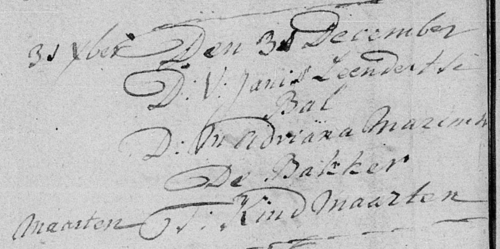 31 xber Den 31 December
D: V: Janis Leendertse
Bal
D: M Adriana
De Bakker
Maarten T: Kind Maarten